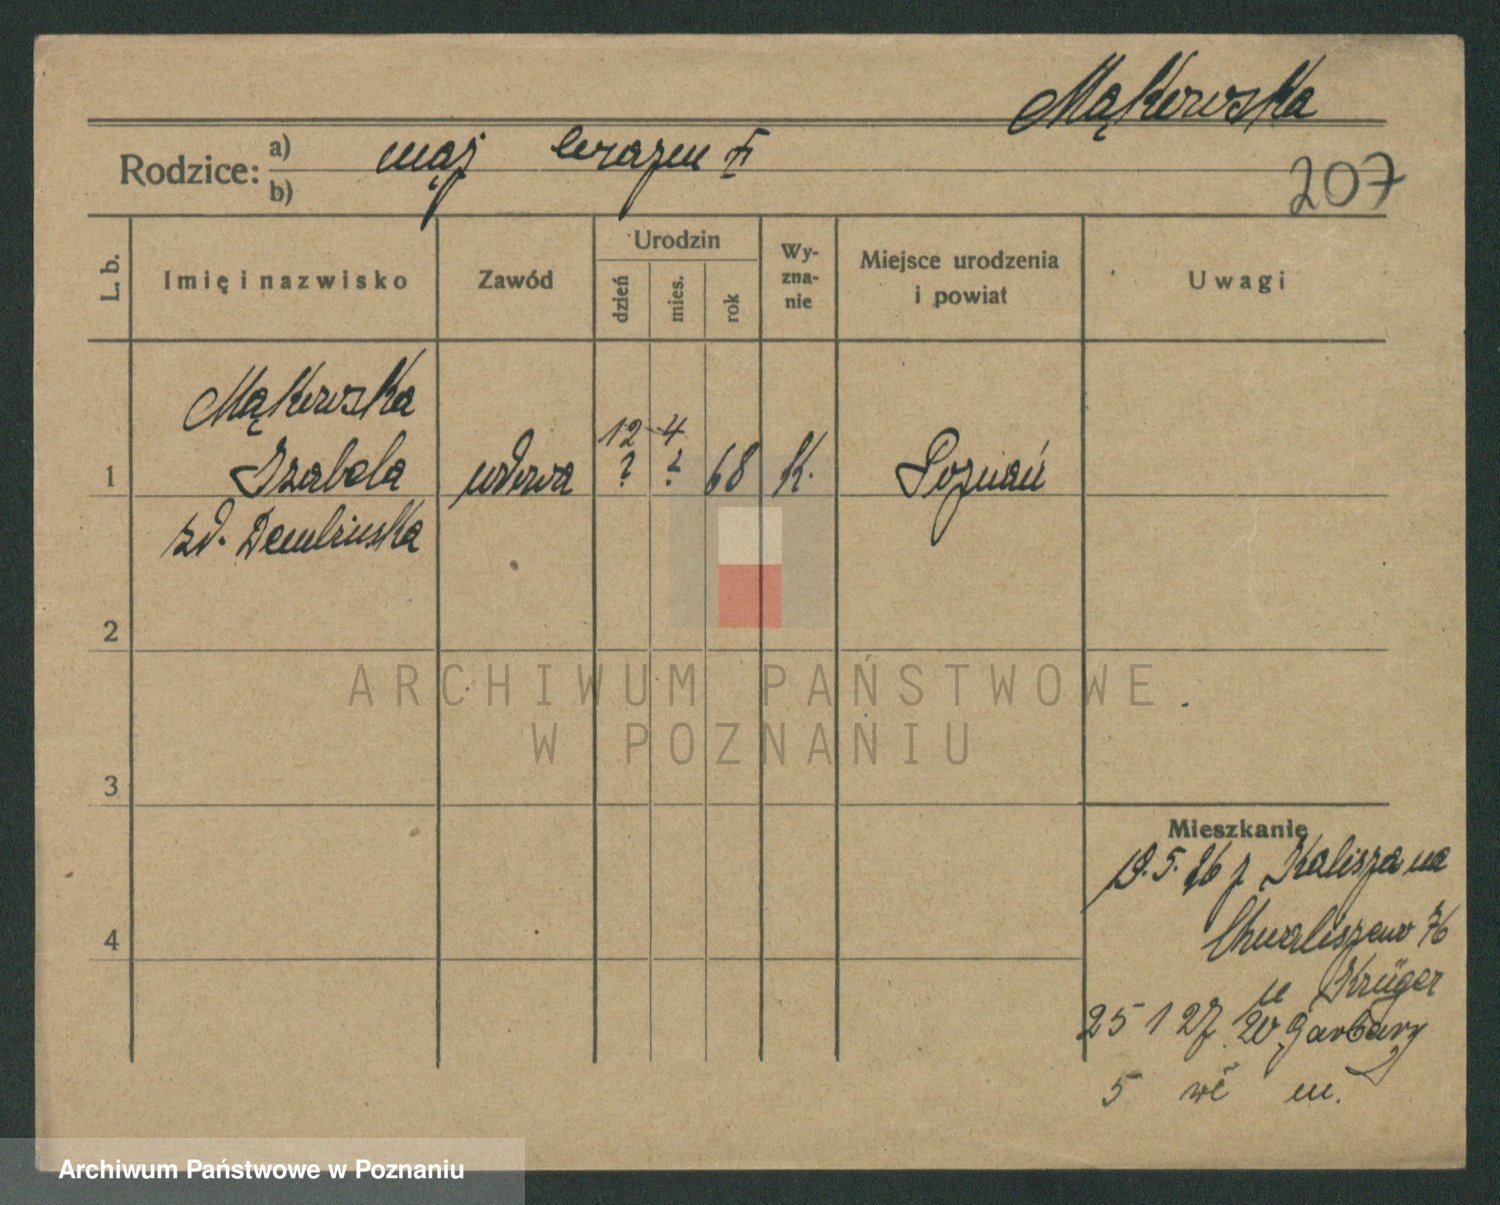 Mąkowska
Rodzice: a) mąż Erazm †
b)
207
L. b.
Imię i nazwisko
Zawód
Urodzin
dzień
mies.
rok
Wy-
zna-
nie
Miejsce urodzenia
i powiat
Uwagi
Mąkowska
12 4
1 Izabela wdowa ? ? 68 K. Poznań
zd. Dembińska
2
3
4
ARCHIWUM PAŃSTWOWE
W POZNANIU
Mieszkanie
19.5.26 z Kalisza na
Chwaliszewo 76
u Krüger
25 1 27 W Garbary
5 m.
Archiwum Państwowe w Poznaniu